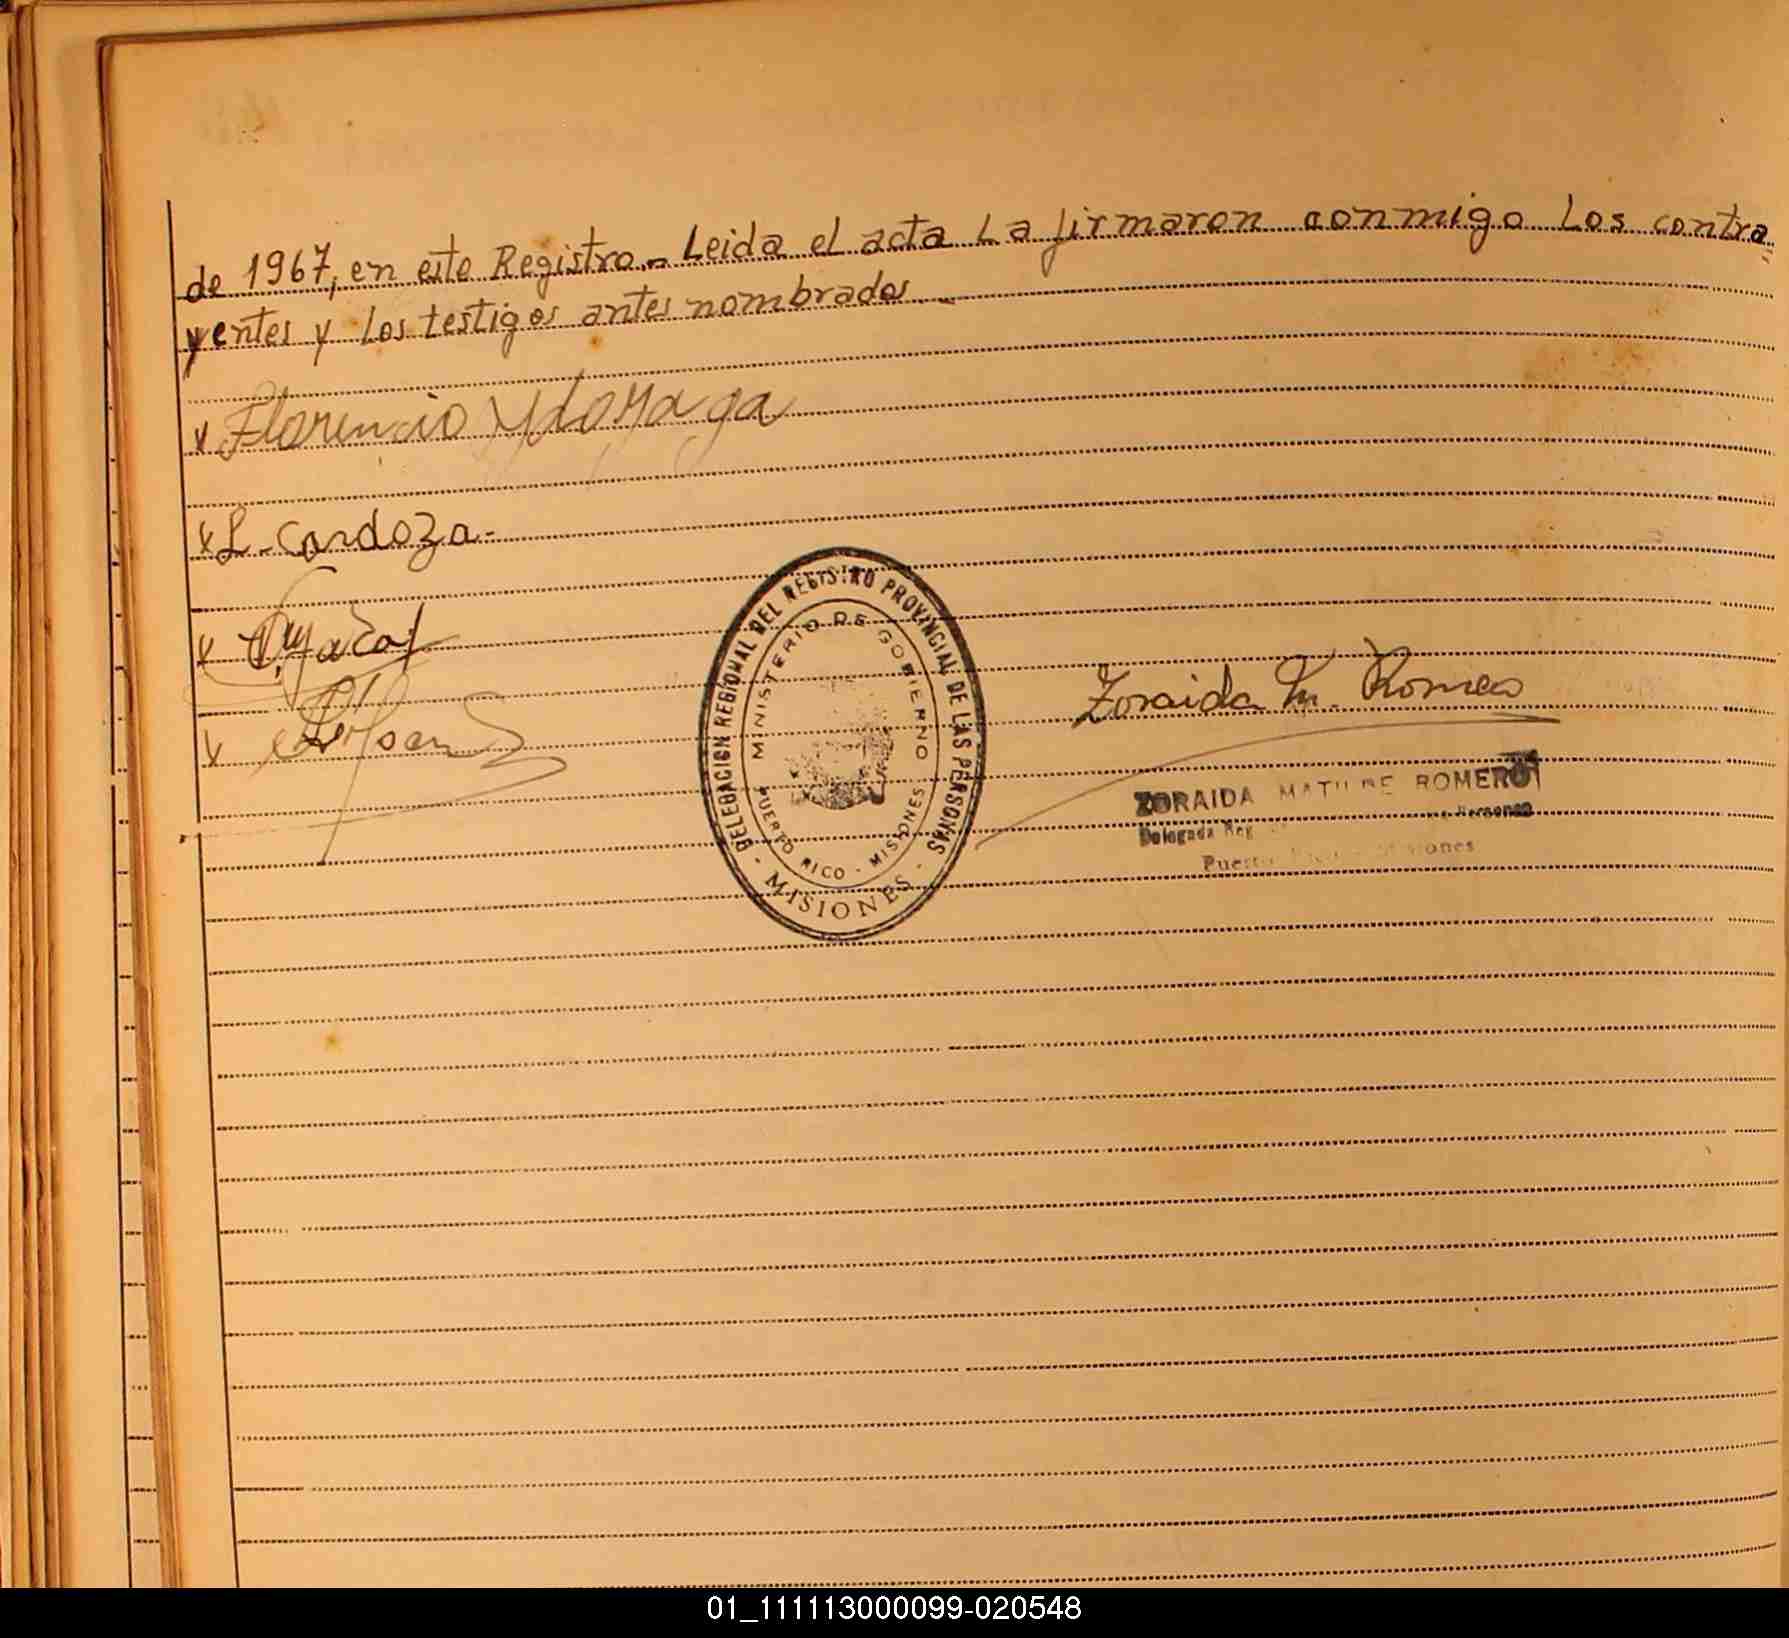 de 1967, en este Registro.- Leida el acta La firmaron conmigo Los contra=
yentes y Los testigos antes nombrados.-
x Florencio Ydoyaga
x L. Cardoza-
x
x
DELEGACION REGIONAL DEL REGISTRO PROVINCIAL DE LAS PERSONAS
- MISIONES -
MINISTERIO DE GOBIERNO
PUERTO RICO - MISIONES
Zoraida M. Romero
ZORAIDA MATILDE ROMERO
Delegada Reg Personas
Puerto Rico - Misiones
01_111113000099-020548